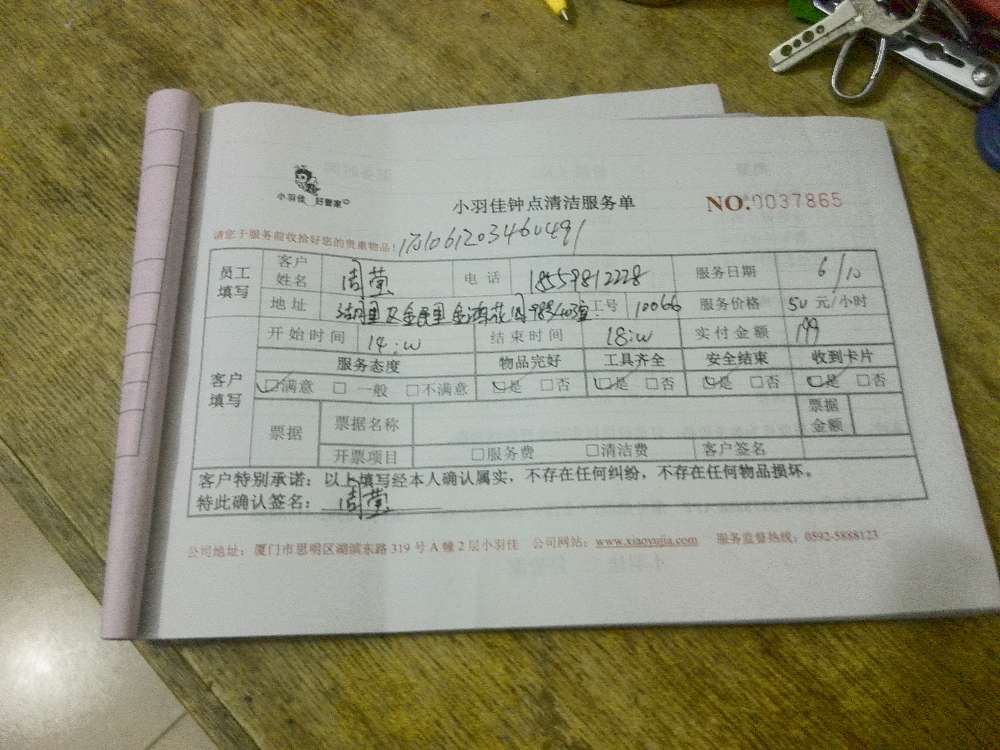 小羽佳 好管家
小羽佳钟点清洁服务单 NO.0037865
请您于服务前收拾好您的贵重物品!
员工填写 客户姓名 周莹 电话 18559812228 服务日期 6/10
地址 湖里区金尚里 工号 10066 服务价格 50元/小时
客户填写 开始时间 14:00 结束时间 18:00 实付金额 199
服务态度 物品完好 工具齐全 安全结束 收到卡片
☑满意 □一般 □不满意 ☑是 □否 ☑是 □否 ☑是 □否 ☑是 □否
票据 票据名称 票据金额
开票项目 □服务费 □清洁费 客户签名
客户特别承诺:以上填写经本人确认属实,不存在任何纠纷,不存在任何物品损坏。
特此确认签名:周莹
公司地址:厦门市思明区湖滨东路319号A幢2层小羽佳 公司网站:www.xiaoyujia.com 服务监督热线:0592-5888123